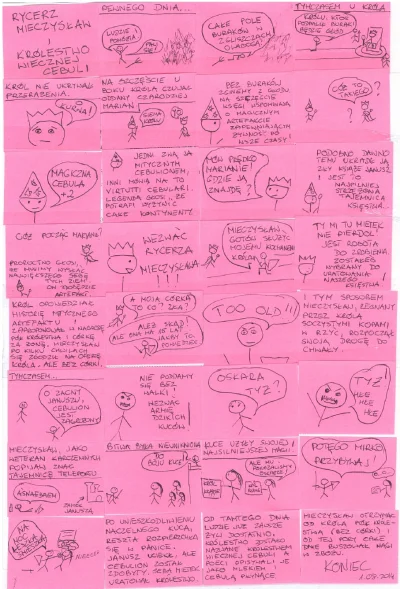 RYCERZ
MIECZYSŁAW
I
KRÓLESTWO
WIECZNEJ
CEBULI
PEWNEGO DNIA...
LUDZIE I
POWODZIA
CAŁE POLE
BURAKÓW W
ZGLISZCZACH
OLABOGA!
TYMCZASEM U KRÓLA
KRÓLU, KTOŚ
PODPALIŁ BURAKI
BĘDZIE GŁÓD
KRÓL NIE UKRYWAŁ
PRZERAŻENIA.
KURWA!
NA SZCZĘŚCIE U
BOKU KRÓLA CZUWAŁ
ODDANY CZARODZIEJ
MARIAN
SIEMA
KRÓLU
BEZ BURAKÓW
ZGINIEMY Z GŁODU
NA SZCZĘŚCIE
KSIĘGI WSPOMINAJĄ
O MAGICZNYM
ARTEFAKCIE
ZAPEWNIAJĄCYM
ŻYWNOŚĆ PO
WSZE CZASY!
CÓŻ TO
TAKIEGO?
MAGICZNA
CEBULA
+2
JEDNI ZWĄ JĄ
MITYCZNYM
CEBULIONEM,
INNI MÓWIĄ NA TO
VIRTUTI CEBULARI.
LEGENDA GŁOSI, ŻE
POTRAFI WYŻYWIĆ
CAŁE KONTYNENTY
MÓW PRĘDKO
MARIANIE!
GDZIE JĄ
ZNAJDĘ?
PODOBNO DAWNO
TEMU UKRADŁ JĄ
ZŁY KSIĄŻĘ JANUSZ
I JEST TO
NAJPILNIEJ
STRZEŻONA
TAJEMNICA
KSIĘSTWA.
CÓŻ POCZĄĆ MARIANIE?
PROROCTWO GŁOSI,
ŻE MUSIMY WYSŁAĆ
NAJWIĘKSZEGO SEBĘ
TYCH ZIEM
ON ZDOBĘDZIE
ARTEFAKT.
WEZWAĆ
RYCERZA
MIECZYSŁAWA
MIECZYSŁAW,
GOTÓW SŁUŻYĆ
MOJEMU
KRÓLOWI
TY MI TU MIETEK
NIE PIERDOL
JEST ROBOTA
DO ZROBIENIA.
ZOSTAŁEŚ
WYBRANY DO
URATOWANIA
NASZEGO
KRÓLESTWA
KRÓL OPOWIEDZIAŁ
HISTORIĘ MITYCZNEGO
ARTEFAKTU
I ZAPROPONOWAŁ W NAGRODĘ
PÓŁ KRÓLESTWA I CÓRKĘ
ZA ŻONĘ, MIECZYSŁAW
PO KILKU CHWILACH
SIĘ ZGODZIŁ NA OFERTĘ
KRÓLA, ALE BEZ CÓRKI.
A MOJA CÓRKA
TO CO? ZŁA?
ALE SKĄD?
ALE ONA MA 13 LAT
JAKBY TO
POWIEDZIEĆ
TOO OLD!!!
I TYM SPOSOBEM
MIECZYSŁAW, ŻEGNANY
PRZEZ KRÓLA
SOCZYSTYMI KOPAMI
W RZYĆ, ROZPOCZĄŁ
SWOJĄ DROGĘ DO
CHWAŁY...
TYMCZASEM...
O ZACNY
JANUSZU,
CEBULION
JEST
ZAGROŻONY
NIE PODDAMY
SIĘ BEZ
WALKI!
WEZWAĆ
ARMIĘ
DZIKICH
KUCÓW
OSKARA
TYŻ?
TYŻ!
HŁE
HŁE
HŁE
MIECZYSŁAW, JAKO
WETERAN KARCZEMNYCH
POPIJAW, ZNAŁ
TAJEMNICĘ TELEPORTU
ZAMEK
JANUSZA
BITWA BYŁA NIEUNIKNIONA
TO
BÓJ KUCE!
KUCE UŻYŁY SWOJEJ
NAJSILNIEJSZEJ MAGII
POTĘGO MIRKO
PRZYBYWAJ
NA
MOC
PO UNIESZKODLIWIENIU
NACZELNEGO KUCA,
RESZTA ROZPIERZCHŁA
SIĘ W PANICE.
JANUSZ UCIEKŁ, ALE
CEBULION ZOSTAŁ
ZDOBYTY. SEBA MIETEK
URATOWAŁ KRÓLESTWO.
OD TAMTEGO DNIA
LUDZIE JUŻ ZAWSZE
BYLI DOSTATNIO.
KRÓLESTWO ZOSTAŁO
NAZWANE KRÓLESTWEM
WIECZNEJ CEBULI A
POECI OPISYWALI JE
JAKO MLEKIEM I
CEBULĄ PŁYNĄCE
MIECZYSŁAW OTRZYMAŁ
OD KRÓLA PÓŁ KRÓLE-
STWA (BEZ CÓRKI) I
OD TEJ PORY CAŁE
DNIE BIEGAŁ NAGI
W ZBOŻU.
KONIEC